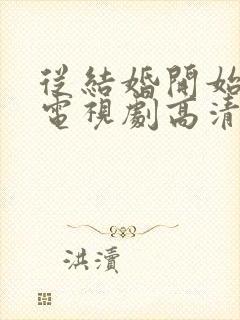 從結婚開始
電視劇高清
洪瀆